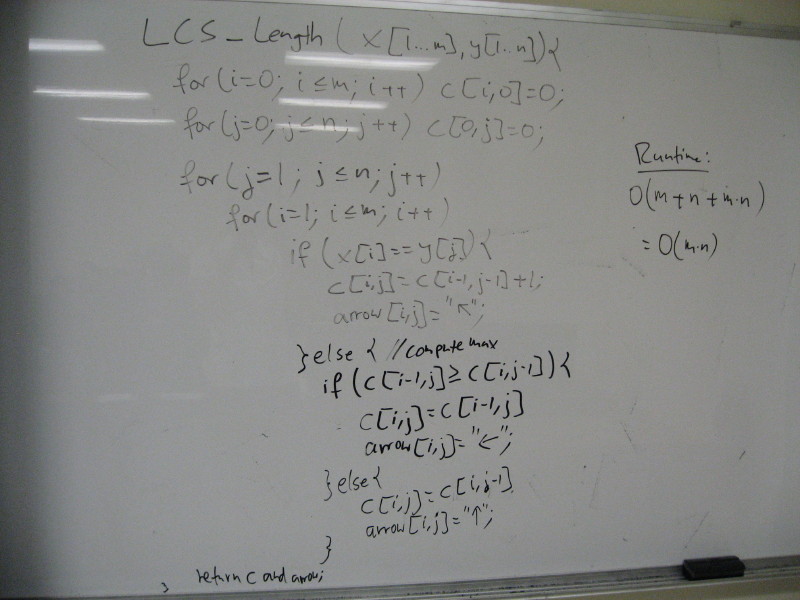 LCS_Length (x[1...m], y[1..n]){
for(i=0; i≤m; i++) c[i,0]=0;
for(j=0; j≤n; j++) c[0,j]=0;
for(j=1; j≤n; j++)
for(i=1; i≤m; i++)
if (x[i]==y[j]){
c[i,j]=c[i-1,j-1]+1;
arrow[i,j]="↖";
}else{ //compute max
if (c[i-1,j]≥c[i,j-1]){
c[i,j]=c[i-1,j]
arrow[i,j]="←";
}else{
c[i,j]=c[i,j-1]
arrow[i,j]="↑";
}
return c and arrow;
}
Runtime:
O(m+n+m·n)
=O(m·n)